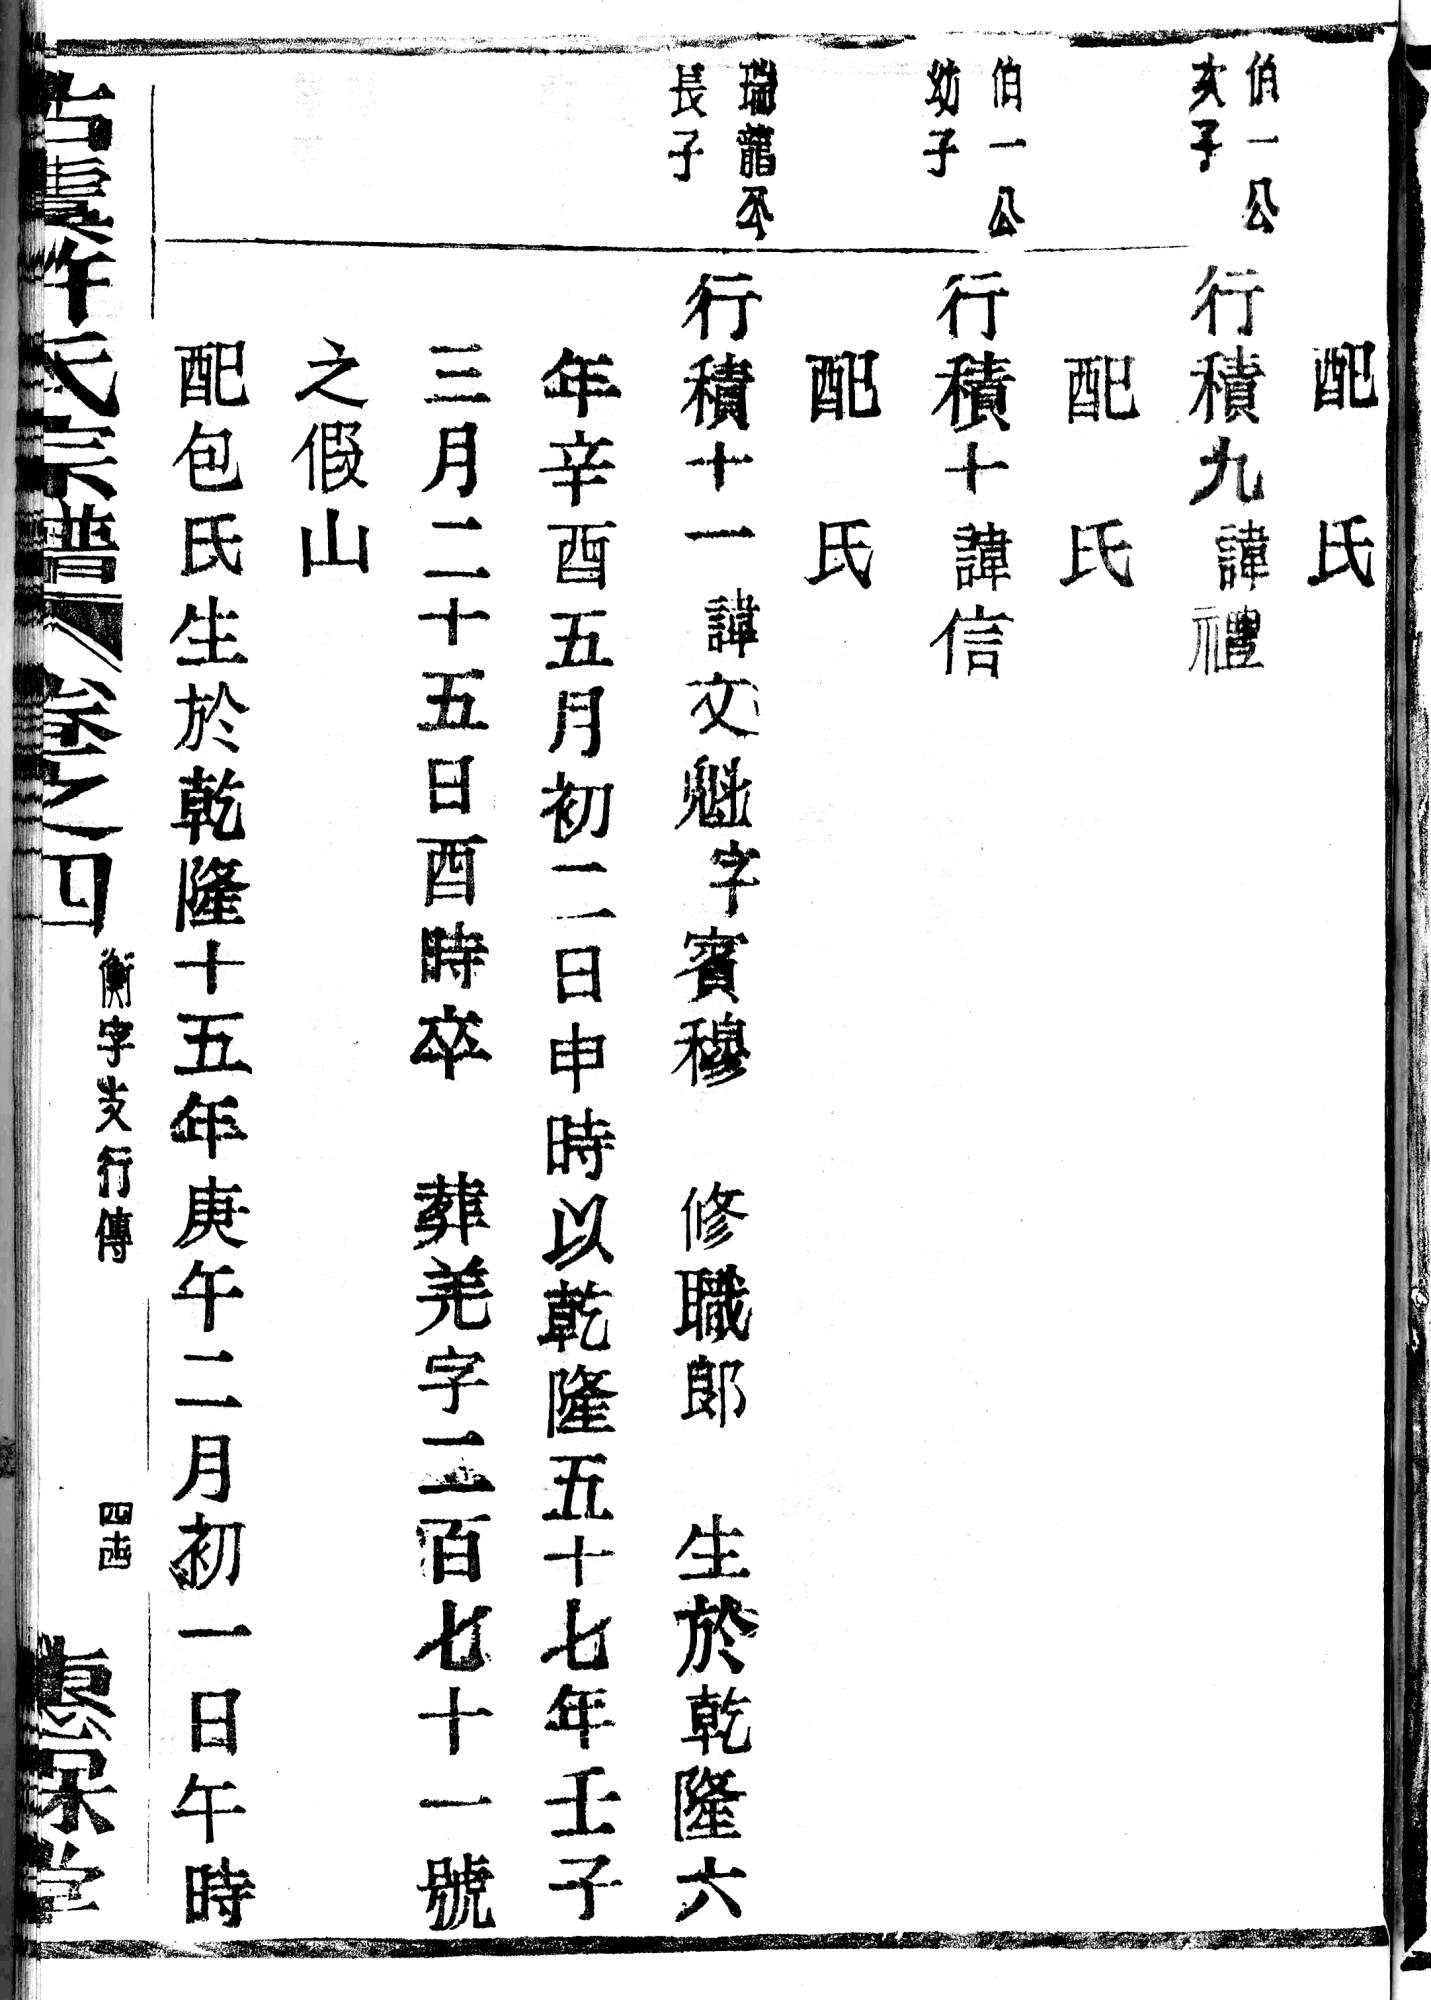 配氏
伯一公
次子
行積九諱禮
配氏
伯一公
幼子
行積十諱信
配氏
瑞龍公
長子
行積十一諱文魁字賓穆 修職郎 生於乾隆六
年辛酉五月初二日申時以乾隆五十七年壬子
三月二十五日酉時卒 葬羌字二百七十一號
之假山
配包氏生於乾隆十五年庚午二月初一日午時
古虞許氏宗譜 卷之四
衡字支行傳